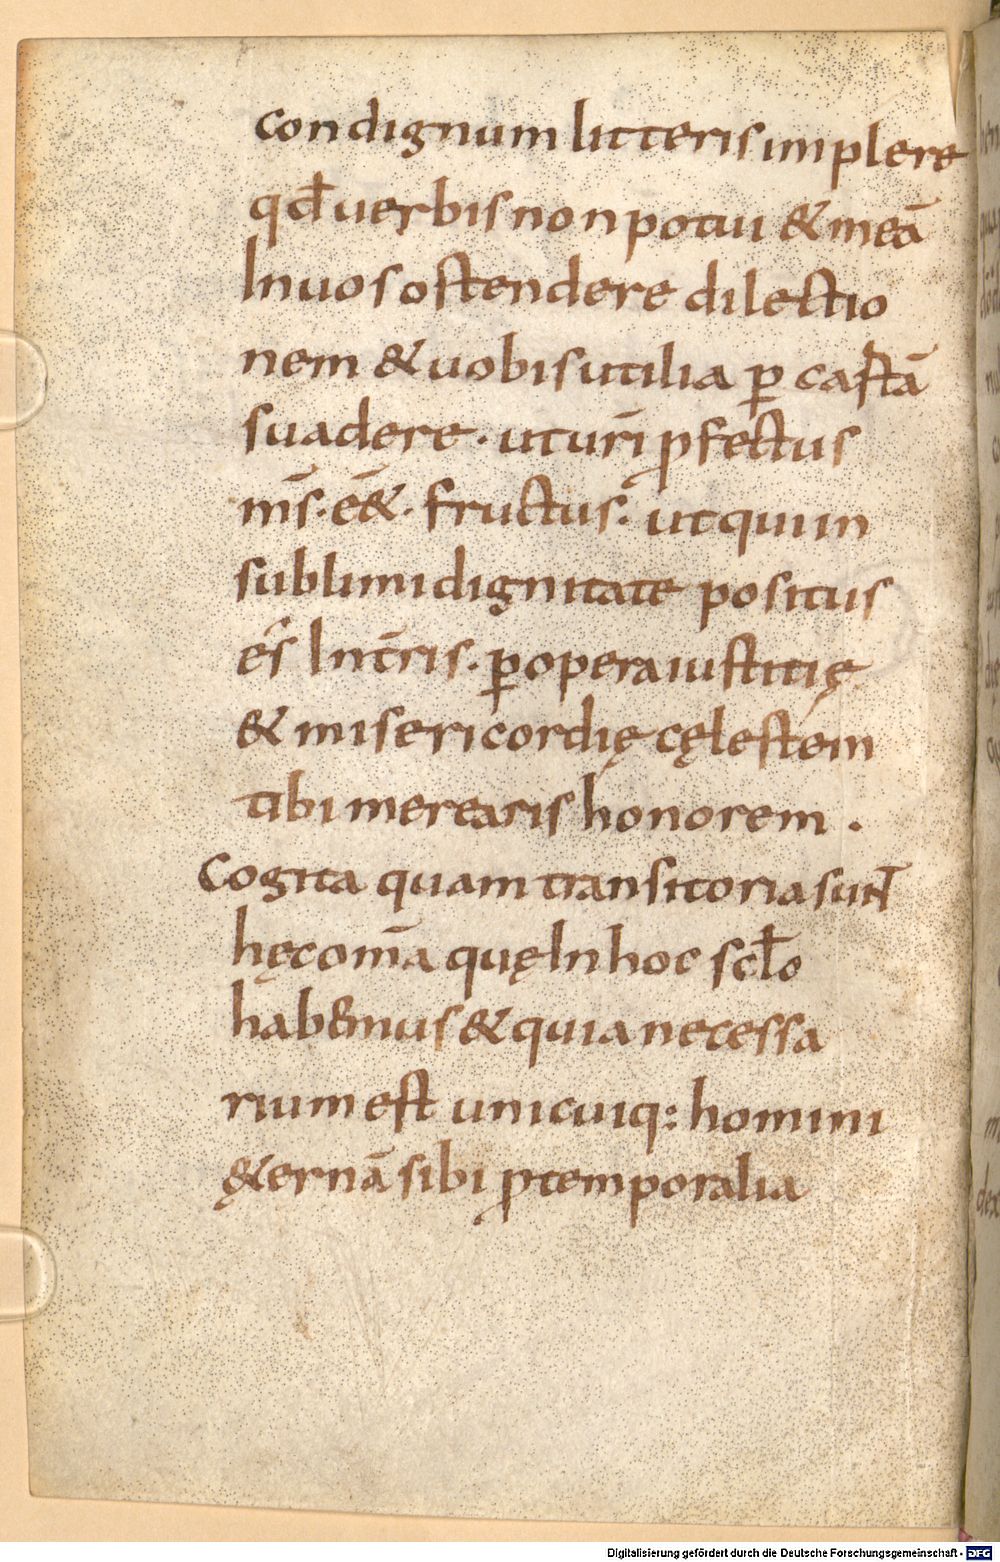 condignum litteris implere
qđ uerbis non potui & meā
In uos ostendere dilectio
nem & uobis utilia ꝑ castā
suadere · ut urī ꝓfectus
nīs · eēt& · fructus · ut qui in
sublimi dignitate positus
és In trīs · ꝑ opera iustitię
& misericordię cęlestem
tibi merearis honorem .
Cogita quam transitoria sunt
hęc om̄a quę In hoc scło
hab&mus & quia necessa
rium est unicuiq: homini
ę&ernā sibi ꝓ temporalia
Digitalisierung gefördert durch die Deutsche Forschungsgemeinschaft - DFG